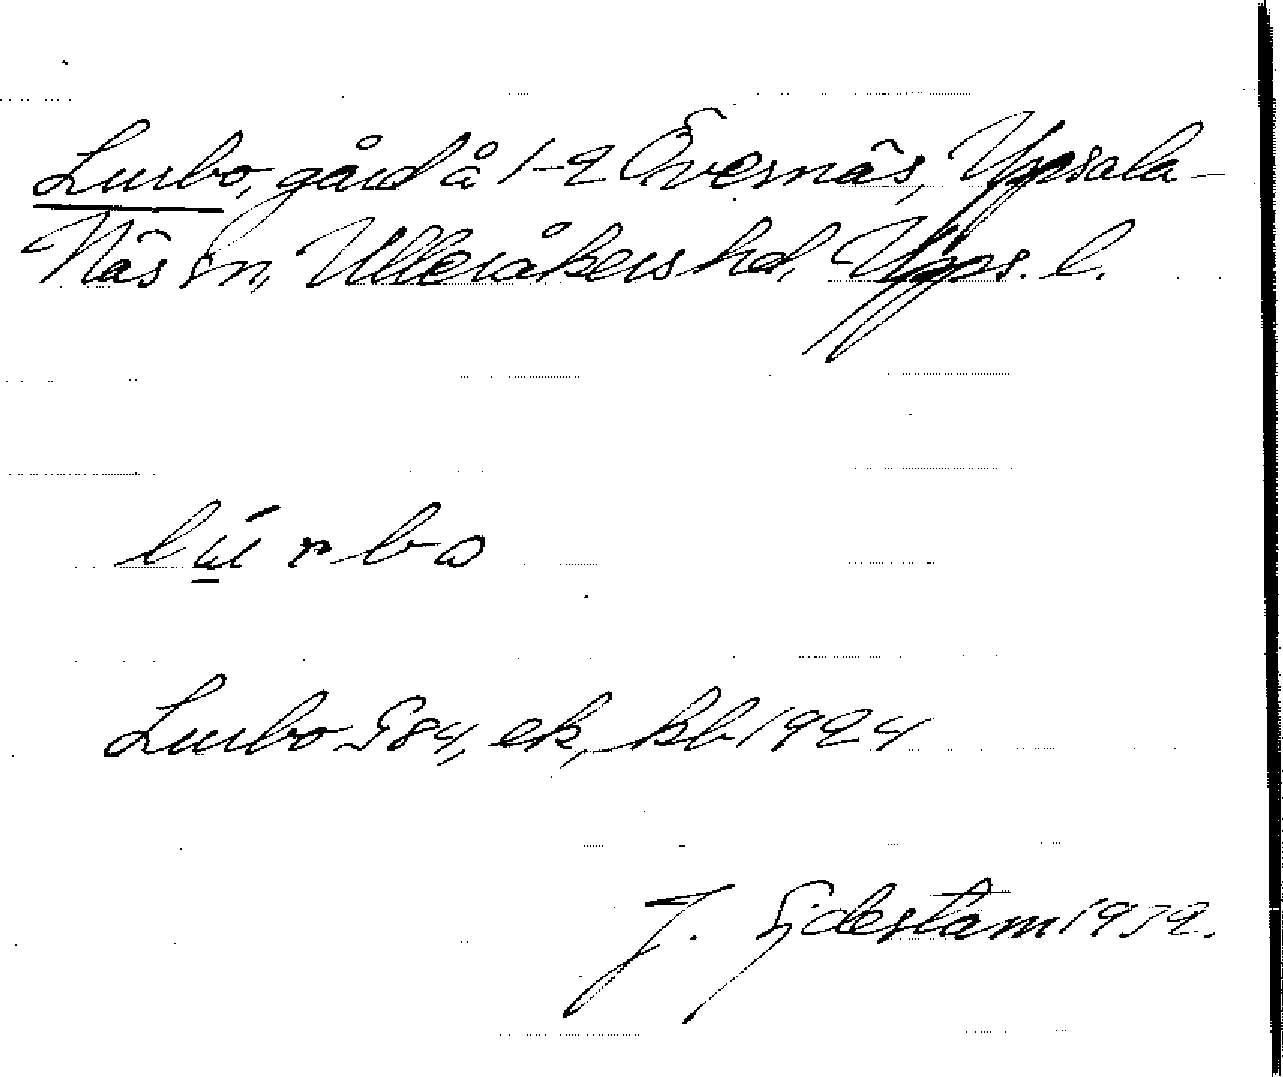 Lurbo, gård å 1-2 Övernäs, Uppsala-
Näs sn, Ulleråkers hd, Upps. l.
lú̲rbω
Lurbo G84, ek, kb 1924
J. Sjdestam 1939.